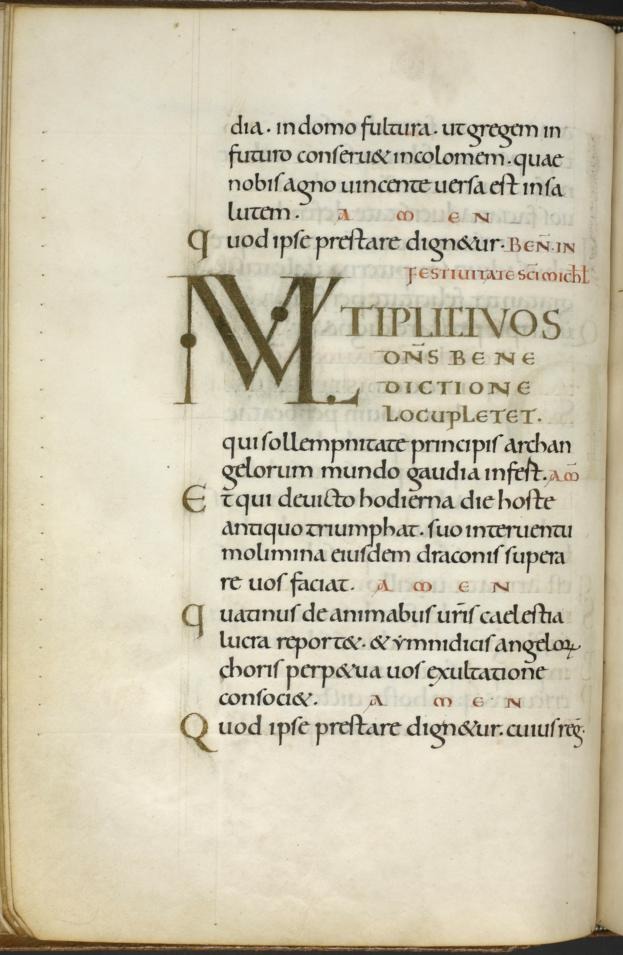 dia. in domo fultura. ut gregem in
futuro conseru& incolomem. quae
nobis agno uincente uersa est in sa
lutem. A M E N
Quod ipse prestare dign&ur. BEÑ. IN
FESTIUITATE SC̄I MICHL̄
MVLTIPLICI VOS
DN̄S BENE
DICTIONE
LOCUPLETET.
qui sollempnitate principis archan
gelorum mundo gaudia infest. AM̄
Et qui deuicto hodierna die hoste
antiquo triumphat. suo interuentu
molimina eiusdem draconis supera
re uos faciat. A M E N
Quatinus de animabus ur̄is caelestia
lucra report&. & ymnidicis angeloꝝ
choris perp&ua uos exultatione
consoci&. A M E N
Quod ipse prestare dign&ur. cuius reḡ.